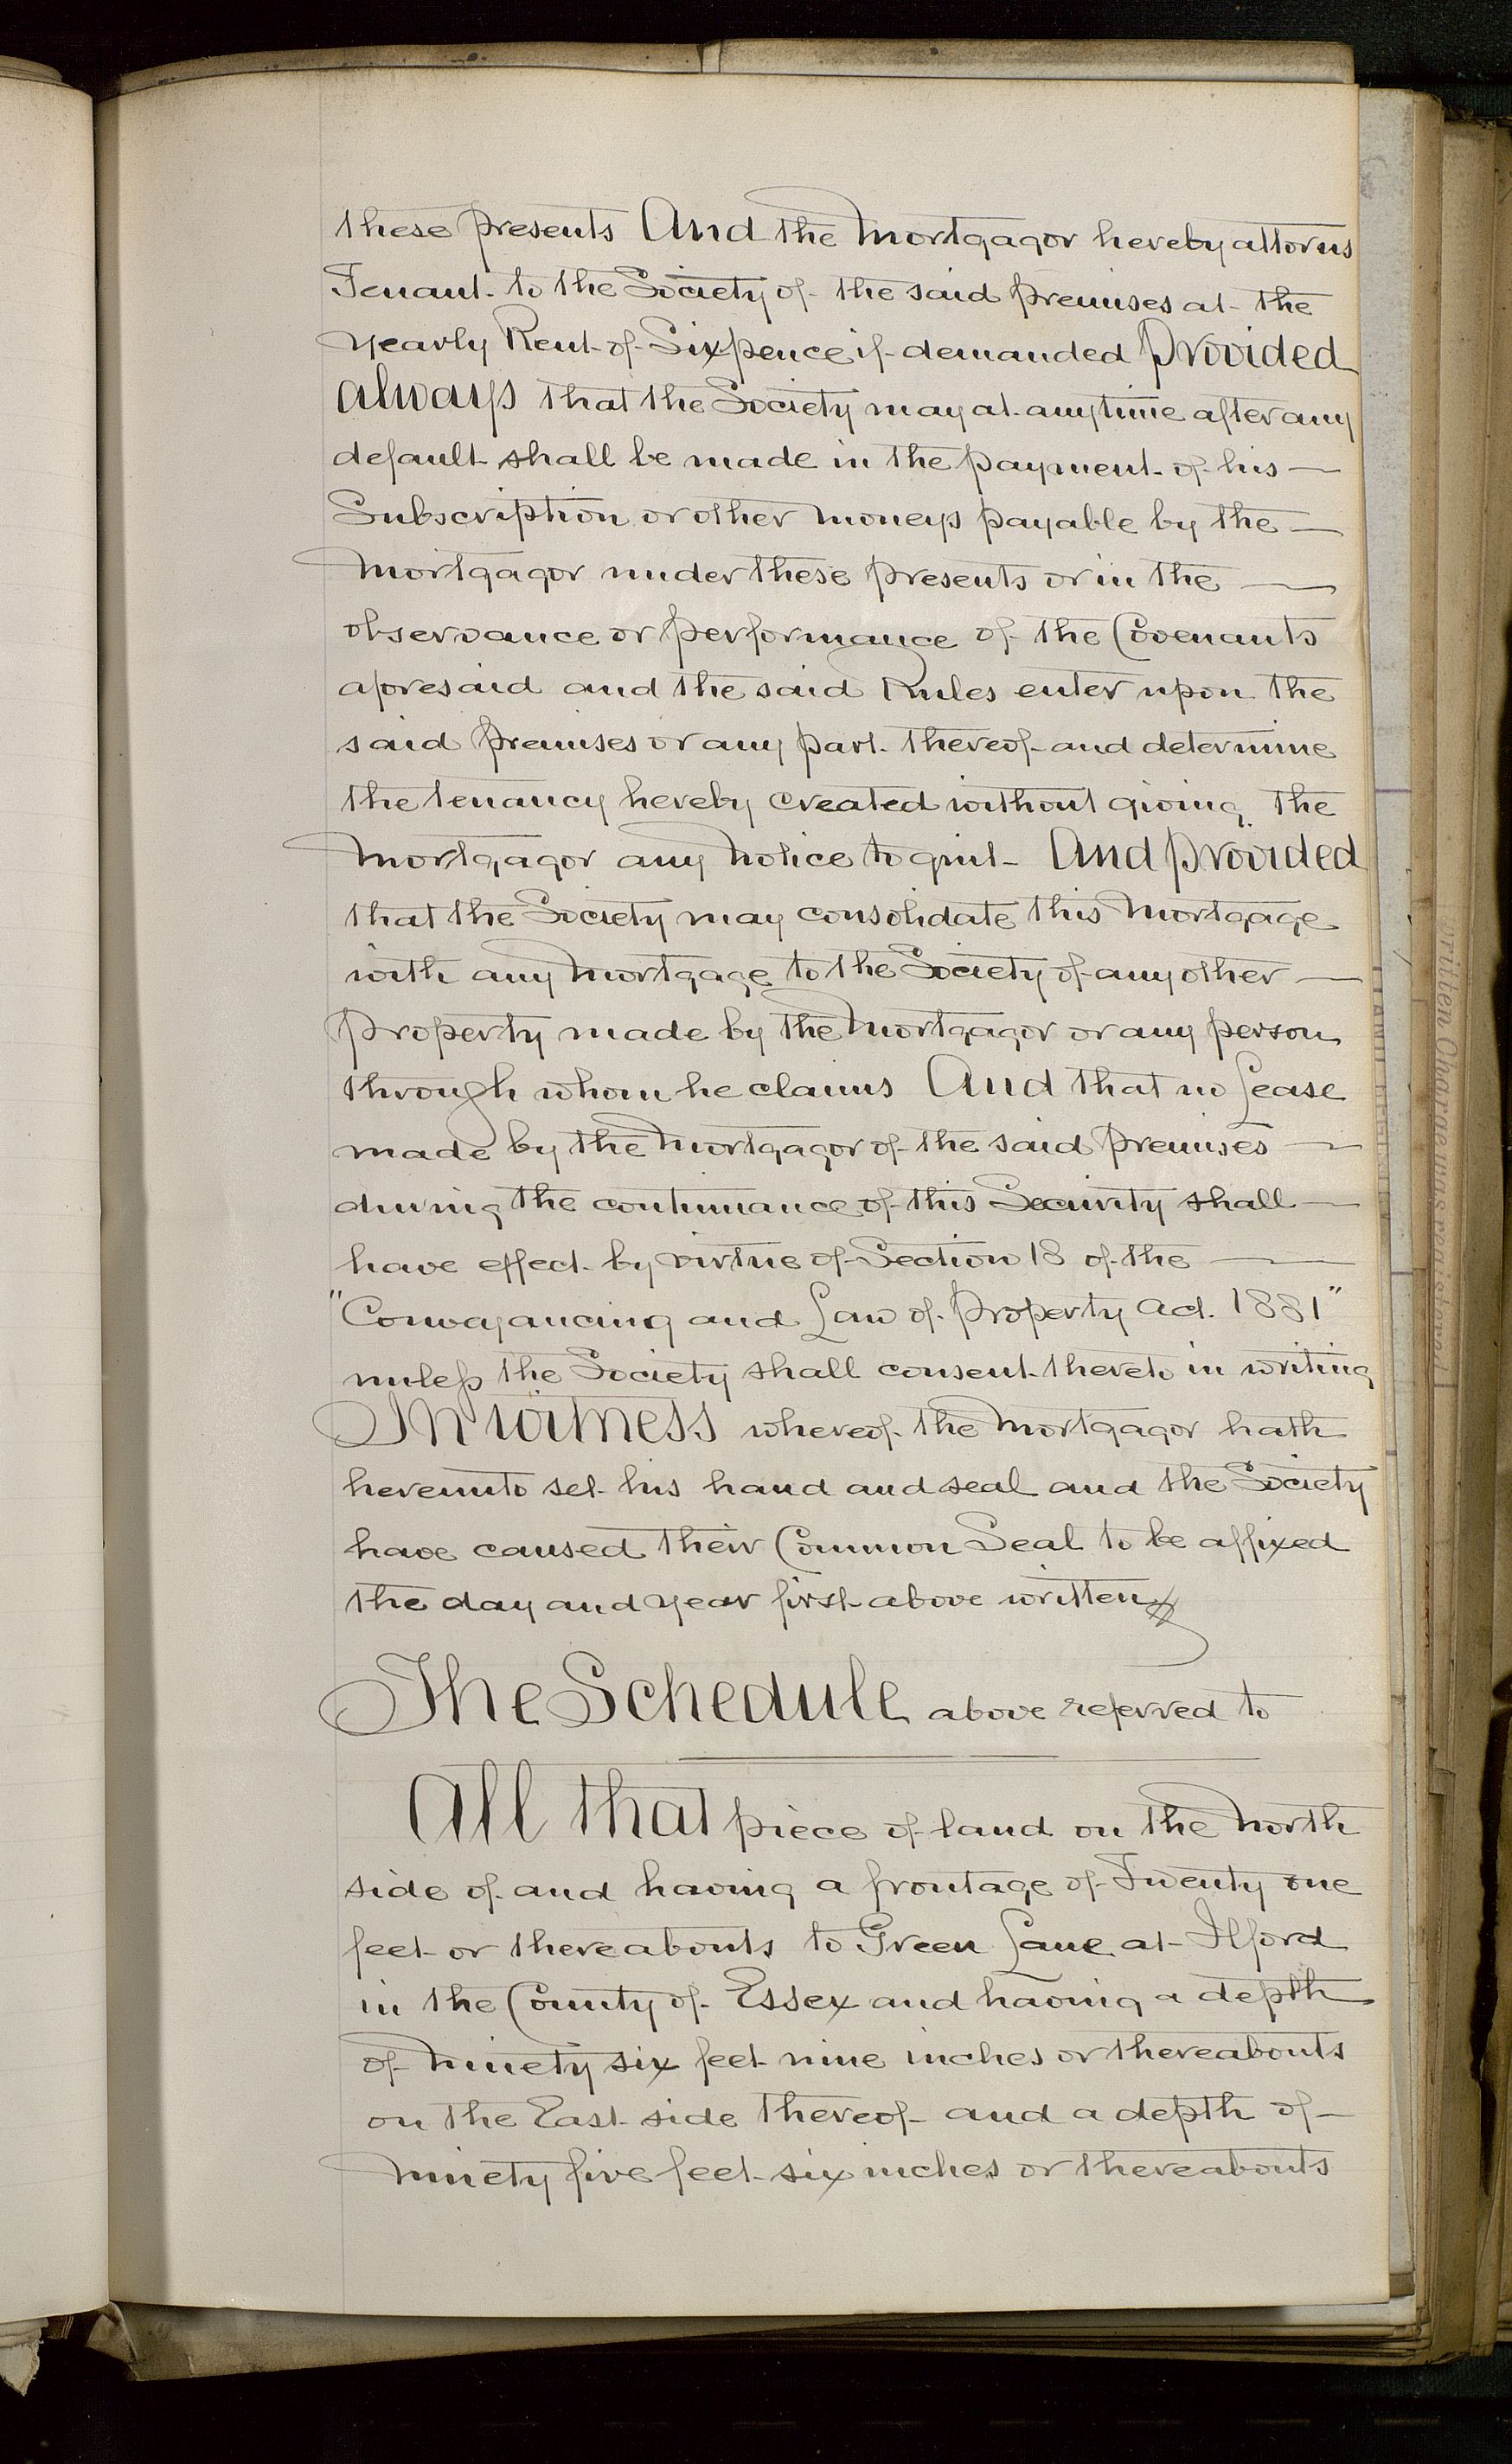 these presents And the Mortgagor hereby attorns
Tenant to the Society of the said premises at the
yearly Rent of Sixpence if demanded Provided
always that the Society may at any time after any
default shall be made in the payment of his
Subscription or other moneys payable by the
Mortgagor under these presents or in the
observance or performance of the Covenants
aforesaid and the said Rules enter upon the
said premises or any part thereof and determine
the tenancy hereby created without giving the
Mortgagor any Notice to quit And provided
that the Society may consolidate this Mortgage
with any Mortgage to the Society of any other
Property made by the Mortgagor or any person
through whom he claims And that no Lease
made by the Mortgagor of the said premises
during the continuance of this Security shall
have effect by virtue of Section 18 of the
"Conveyancing and Law of Property Act. 1881"
unless the Society shall consent thereto in writing
In witness whereof the Mortgagor hath
hereunto set his hand and seal and the Society
have caused their Common Seal to be affixed
the day and year first above written
The Schedule above referred to
All that piece of land on the North
side of and having a frontage of Twenty one
feet or thereabouts to Green Lane at Ilford
in the County of Essex and having a depth
of Ninety six feet nine inches or thereabouts
on the East side thereof and a depth of
Ninety five feet six inches or thereabouts
written Charge was registered